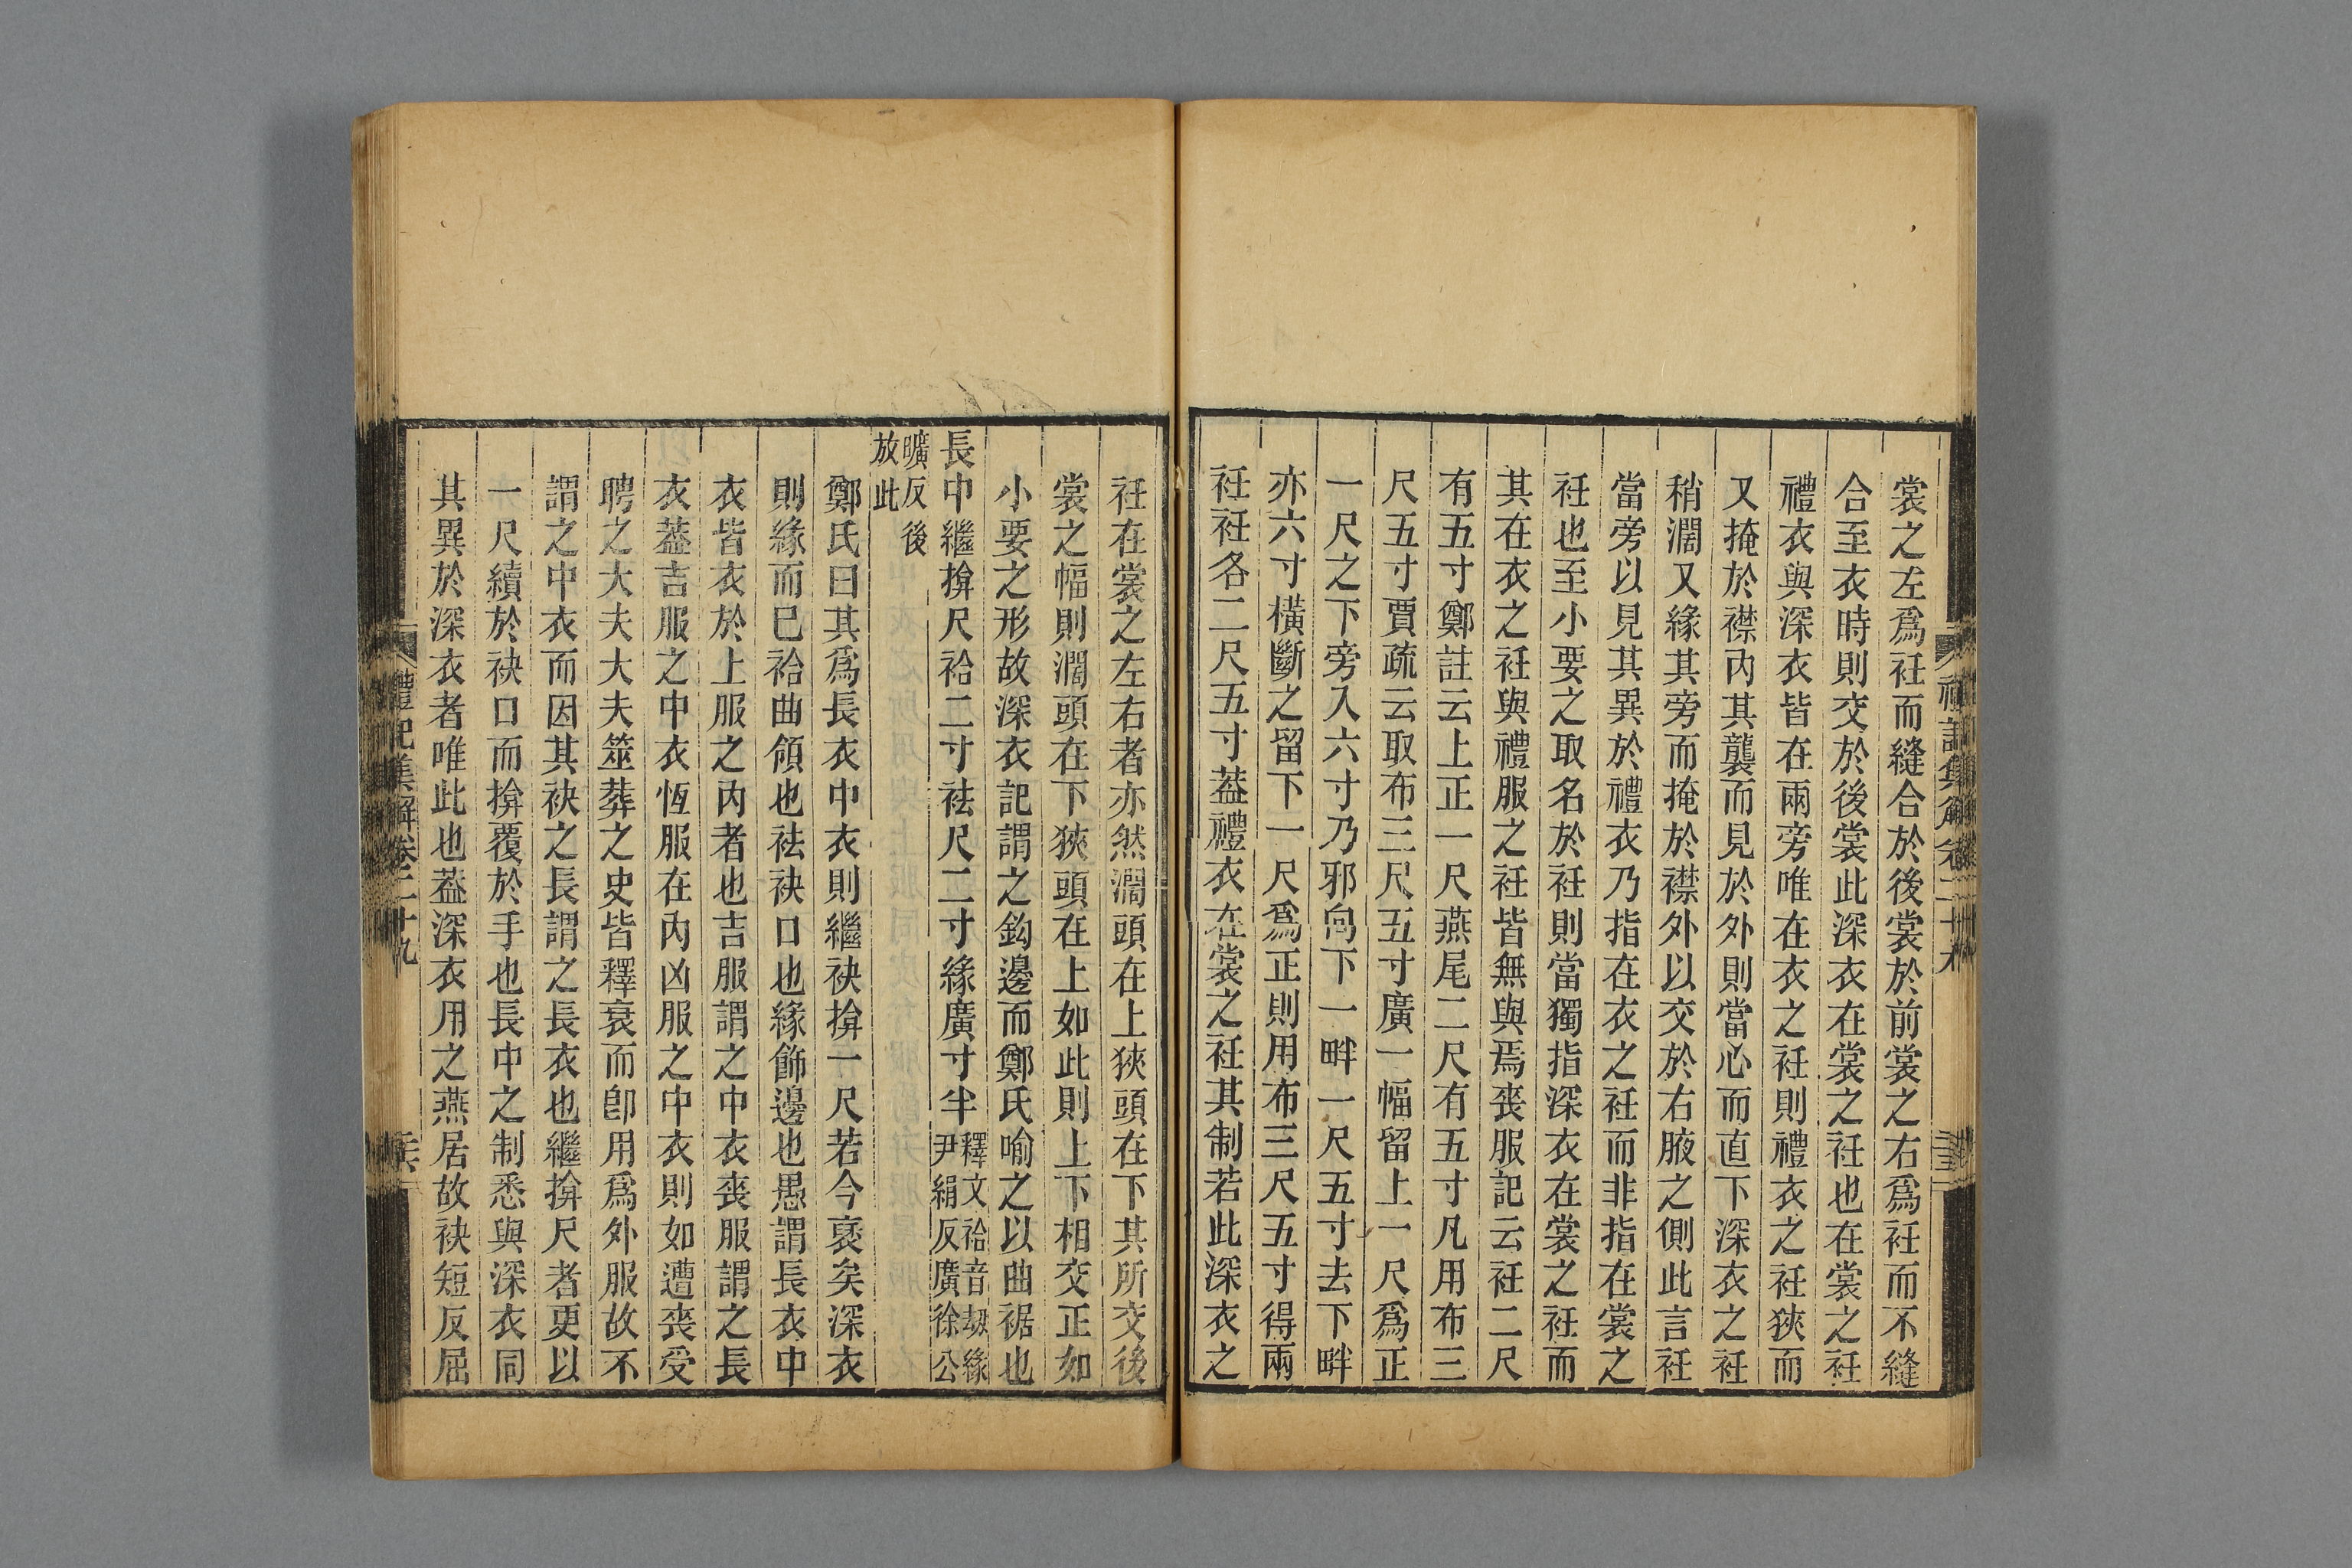 裳之左爲衽而縫合於後裳於前裳之右爲衽而不縫
合至衣時則交於後裳此深衣在裳之衽也在裳之衽
禮衣與深衣皆在兩旁唯在衣之衽則禮衣之衽狹而
又掩於襟內其襲而見於外則當心而直下深衣之衽
稍濶又緣其旁而掩於襟外以交於右腋之側此言衽
當旁以見其異於禮衣乃指在衣之衽而非指在裳之
衽也至小要之取名於衽則當獨指深衣在裳之衽而
其在衣之衽與禮服之衽皆無與焉喪服記云衽二尺
有五寸鄭註云上正一尺燕尾二尺有五寸凡用布三
尺五寸賈疏云取布三尺五寸廣一幅留上一尺爲正
一尺之下旁入六寸乃邪向下一畔一尺五寸去下畔
亦六寸橫斷之留下一尺爲正則用布三尺五寸得兩
衽衽各二尺五寸葢禮衣在裳之衽其制若此深衣之
衽在裳之左右者亦然濶頭在上狹頭在下其所交後
裳之幅則濶頭在下狹頭在上如此則上下相交正如
小要之形故深衣記謂之鈎邊而鄭氏喻之以曲裾也
長中繼揜尺袷二寸袪尺二寸緣廣寸半釋文袷音劫緣
尹絹反廣徐公
曠反後
放此
鄭氏曰其爲長衣中衣則繼袂揜一尺若今褎矣深衣
則緣而巳袷曲領也袪袂口也緣飾邊也愚謂長衣中
衣皆衣於上服之內者也吉服謂之中衣喪服謂之長
衣葢吉服之中衣恆服在內凶服之中衣則如遭喪受
聘之大夫大夫筮葬之史皆釋衰而卽用爲外服故不
謂之中衣而因其袂之長謂之長衣也繼揜尺者更以
一尺續於袂口而揜覆於手也長中之制悉與深衣同
其異於深衣者唯此也葢深衣用之燕居故袂短反屈
禮記集解卷二十九